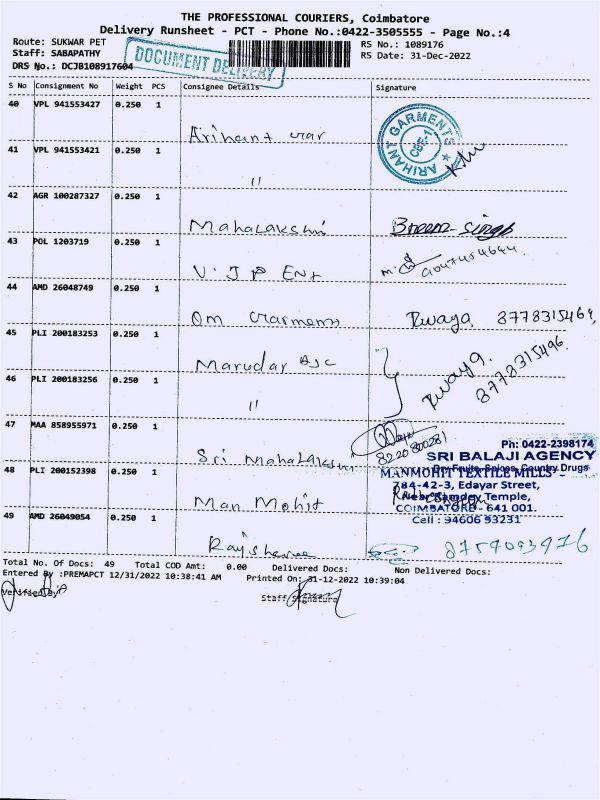 THE PROFESSIONAL COURIERS, Coimbatore
Delivery Runsheet - PCT - Phone No.:0422-3505555 - Page No.:4
Route: SUKWAR PET
RS No.: 1089176
Staff: SABAPATHY
RS Date: 31-Dec-2022
DRS No.: DCJB108917604
DOCUMENT DELIVERY
S No Consignment No Weight PCS Consignee Details Signature
40 VPL 941553427 0.250 1
Arihant Gar
ARIHANT GARMENTS CBE-1
41 VPL 941553421 0.250 1
"
42 AGR 100287327 0.250 1
Mahalakshmi
singh
43 POL 1203719 0.250 1
V. J P Ent
44 AMD 26048749 0.250 1
Om Garments
8778315464,
45 PLI 200183253 0.250 1
Marudar
8778315496.
46 PLI 200183256 0.250 1
"
47 MAA 858955971 0.250 1
Sri Mahalakshmi
8220800281
Ph: 0422-2398174
SRI BALAJI AGENCY
Dry Fruits, Spices, Country Drugs
MANMOHIT TEXTILE MILLS
48 PLI 200152398 0.250 1
Man Mohit
284-42-3, Edayar Street,
Near Ramdev Temple,
COIMBATORE - 641 001.
Cell : 94606 93231
49 AMD 26049054 0.250 1
Rajshree
8754093976
Total No. Of Docs: 49 Total COD Amt: 0.00 Delivered Docs: Non Delivered Docs:
Entered By :PREMAPCT 12/31/2022 10:38:41 AM Printed On: 31-12-2022 10:39:04
Verified By
Staff Signature